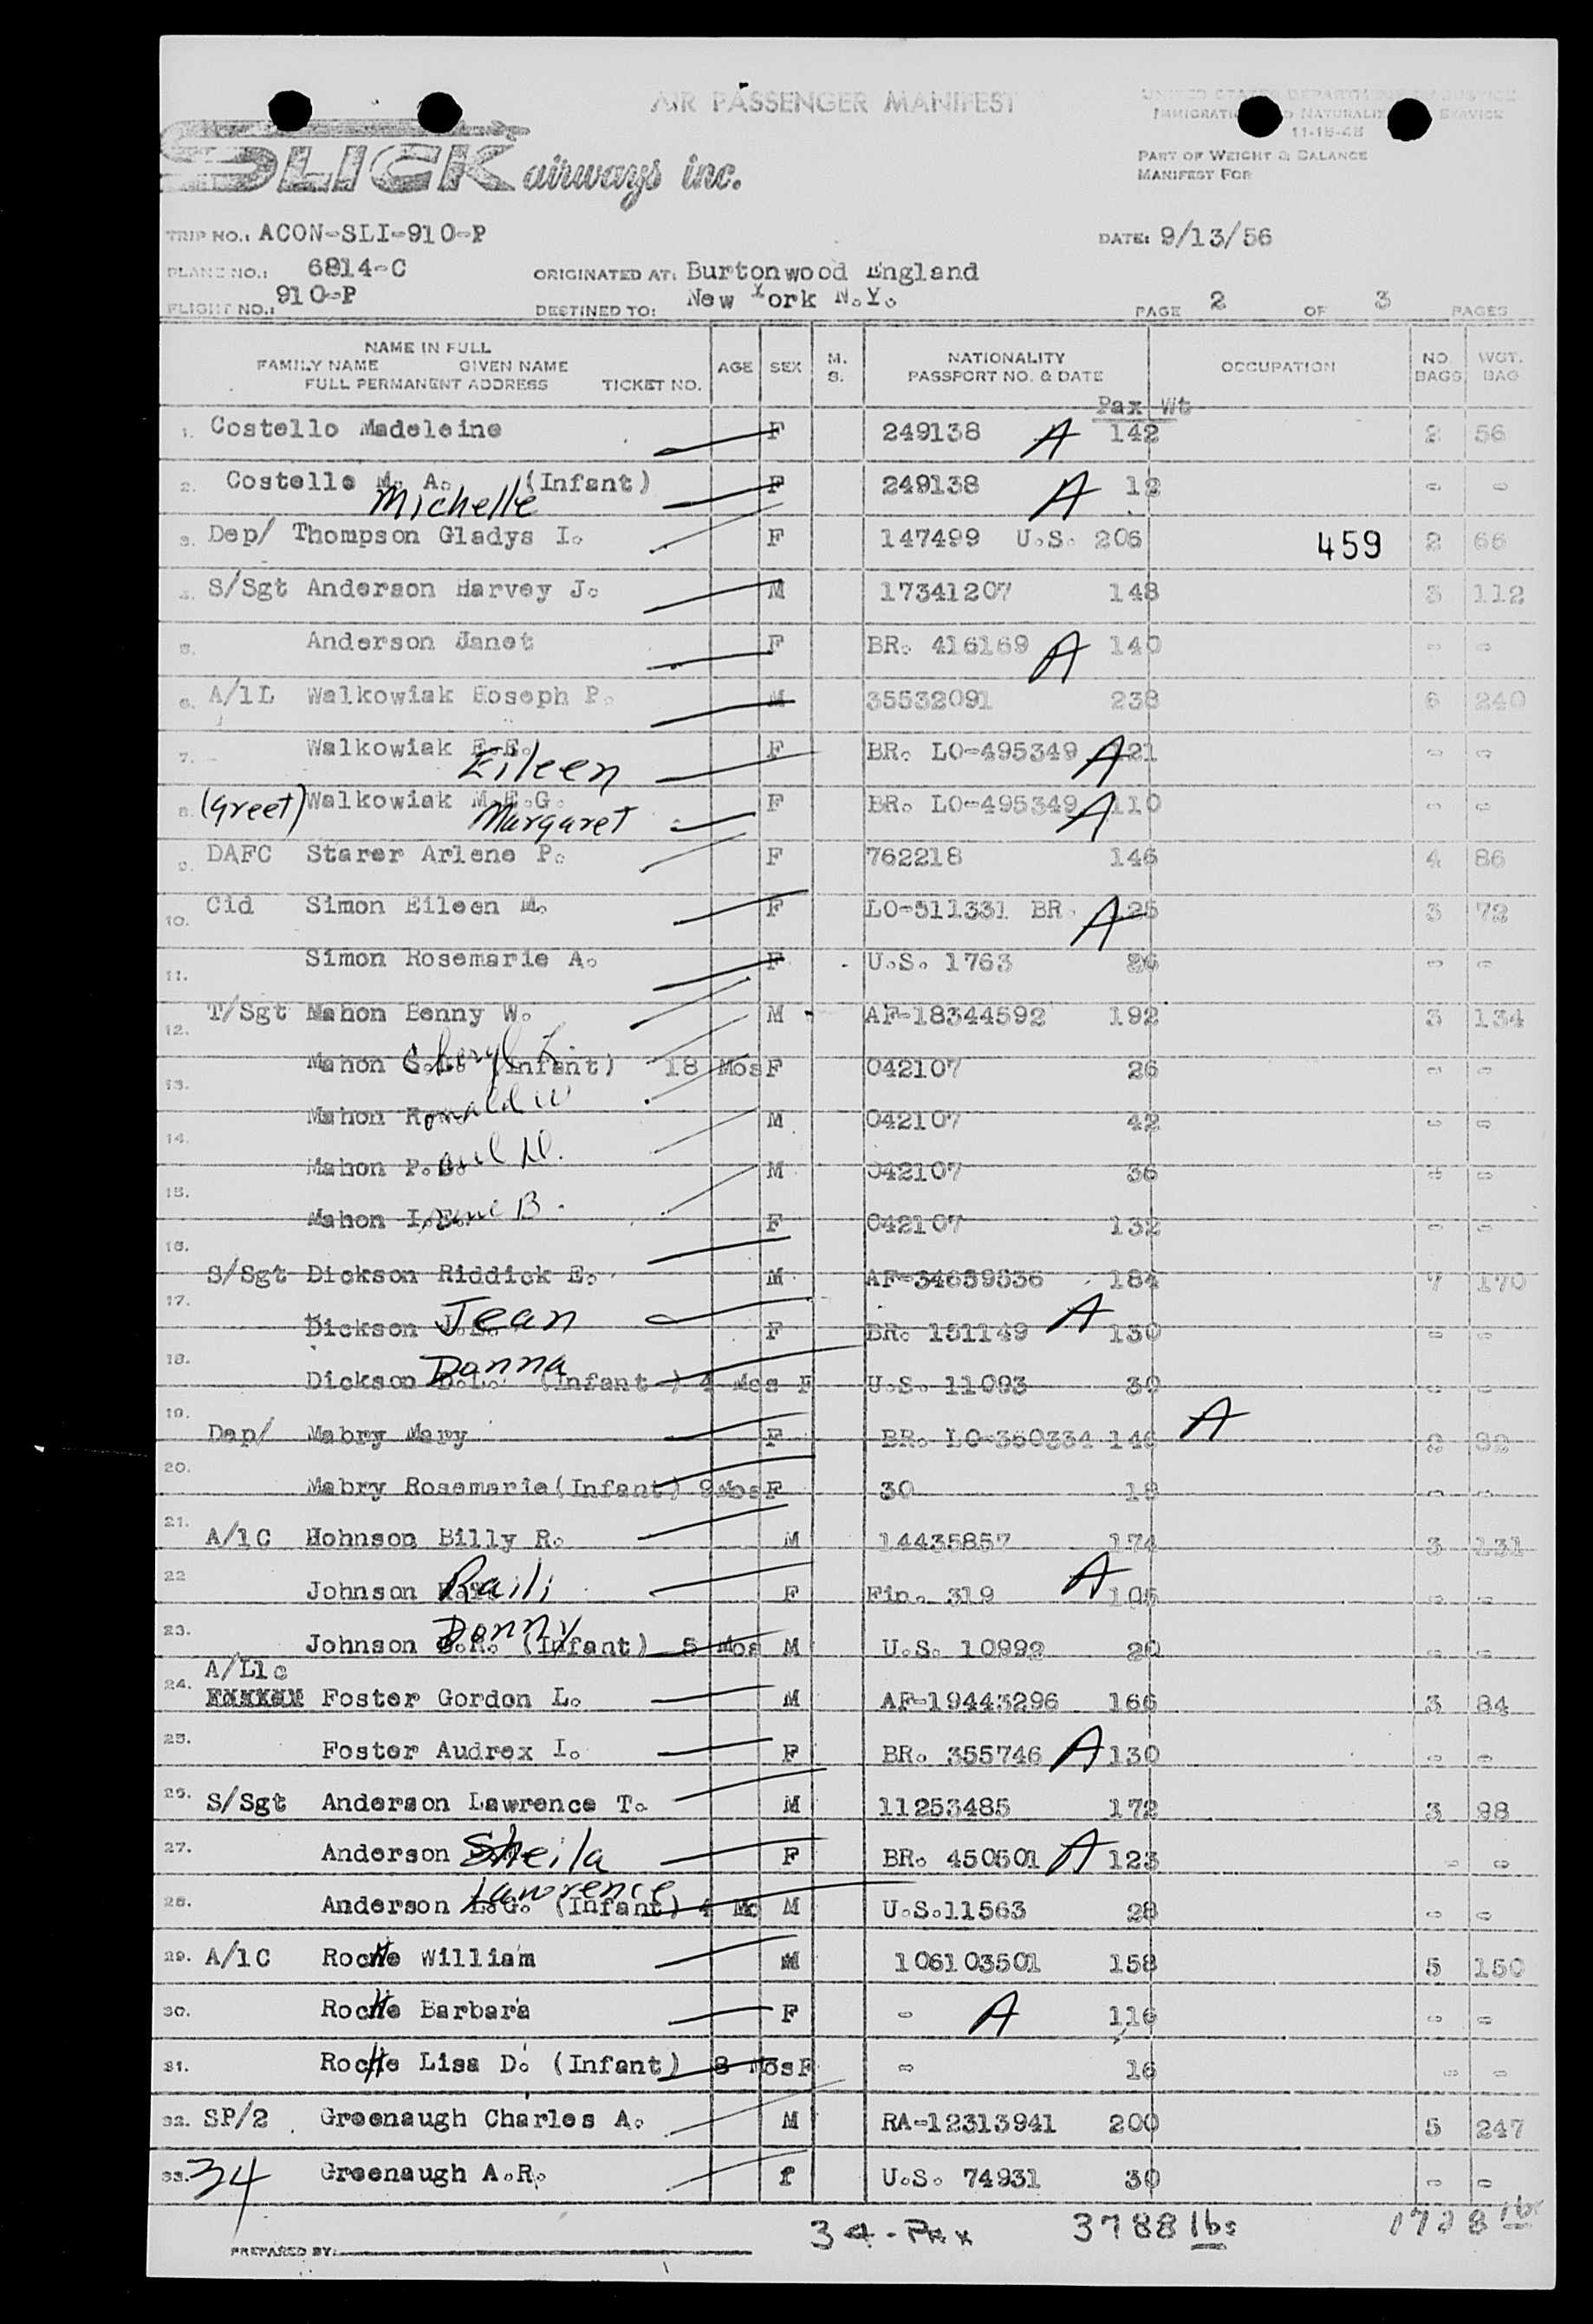 AIR PASSENGER MANIFEST
UNITED STATES DEPARTMENT OF JUSTICE
IMMIGRATION AND NATURALIZATION SERVICE
11-15-48
PART OF WEIGHT & BALANCE
MANIFEST FOR
SLICK airways inc.
TRIP NO.: ACON-SLI-910-P DATE: 9/13/56
PLANE NO.: 6814-C ORIGINATED AT: Burtonwood England
FLIGHT NO.: 910-P DESTINED TO: New York N.Y. PAGE 2 OF 3 PAGES
NAME IN FULL
FAMILY NAME GIVEN NAME
FULL PERMANENT ADDRESS TICKET NO. AGE SEX M. S. NATIONALITY PASSPORT NO. & DATE OCCUPATION NO. BAGS WGT. BAG
Pax Wt
1. Costello Madeleine F 249138 A 142 2 56
2. Costello M. A. (Infant) F 249138 A 12 - -
Michelle
3. Dep/ Thompson Gladys I. F 147499 U.S. 206 459 2 66
4. S/Sgt Anderson Harvey J. M 17341207 148 3 112
5. Anderson Janet F BR. 416169 A 140 - -
6. A/1L Walkowiak Hoseph P. M 35532091 238 6 240
7. Walkowiak E.E. F BR. LO-495349 A 121 - -
Eileen
8. (Greet) Walkowiak M.E.G. F BR. LO-495349 A 110 - -
Margaret
9. DAFC Starer Arlene P. F 762218 146 4 86
10. Cid Simon Eileen M. F LO-511331 BR. A 125 3 72
11. Simon Rosemarie A. F U.S. 1763 26 - -
12. T/Sgt Mahon Benny W. M AF-18344592 192 3 134
13. Mahon Cheryl L. (Infant) 18 Mos F 042107 26 - -
14. Mahon Ronald W M 042107 42 - -
15. Mahon Paul D. M 042107 36 - -
16. Mahon I.E. B. F 042107 132 - -
S/Sgt Dickson Riddick E. M AF-34659536 184 7 170
17. Dickson Jean F BR. 151149 A 130 - -
18. Dickson Donna D.L. (Infant) 4 Mos F U.S. 11093 30 - -
19. Dep/ Mabry Mary F BR. LO-360334 146 A 2 82
20. Mabry Rosemarie (Infant) 9 Mos F 30 18 - -
21. A/1C Hohnson Billy R. M 14435857 174 3 131
22 Johnson Raili F Fin. 319 A 105 - -
23. Johnson Donny (Infant) 5 Mos M U.S. 10992 20 - -
A/L1c
24. Foster Gordon L. M AF-19443296 166 3 84
25. Foster Audrex I. F BR. 355746 A 130 - -
26. S/Sgt Anderson Lawrence T. M 11253485 172 3 98
27. Anderson Sheila F BR. 450501 A 123 - -
28. Anderson Lawrence L.G. (Infant) 4 Mo M U.S.11563 28 - -
29. A/1C RocHe William M 106103501 158 5 150
30. RocHe Barbara F - A 116 - -
31. RocHe Lisa D. (Infant) 8 Mos F - 16 - -
32. SP/2 Greenaugh Charles A. M RA-12313941 200 5 247
33. 34 Greenaugh A.R. f U.S. 74931 30 - -
34 - Pax 3788 lbs 1728 lbs
PREPARED BY: